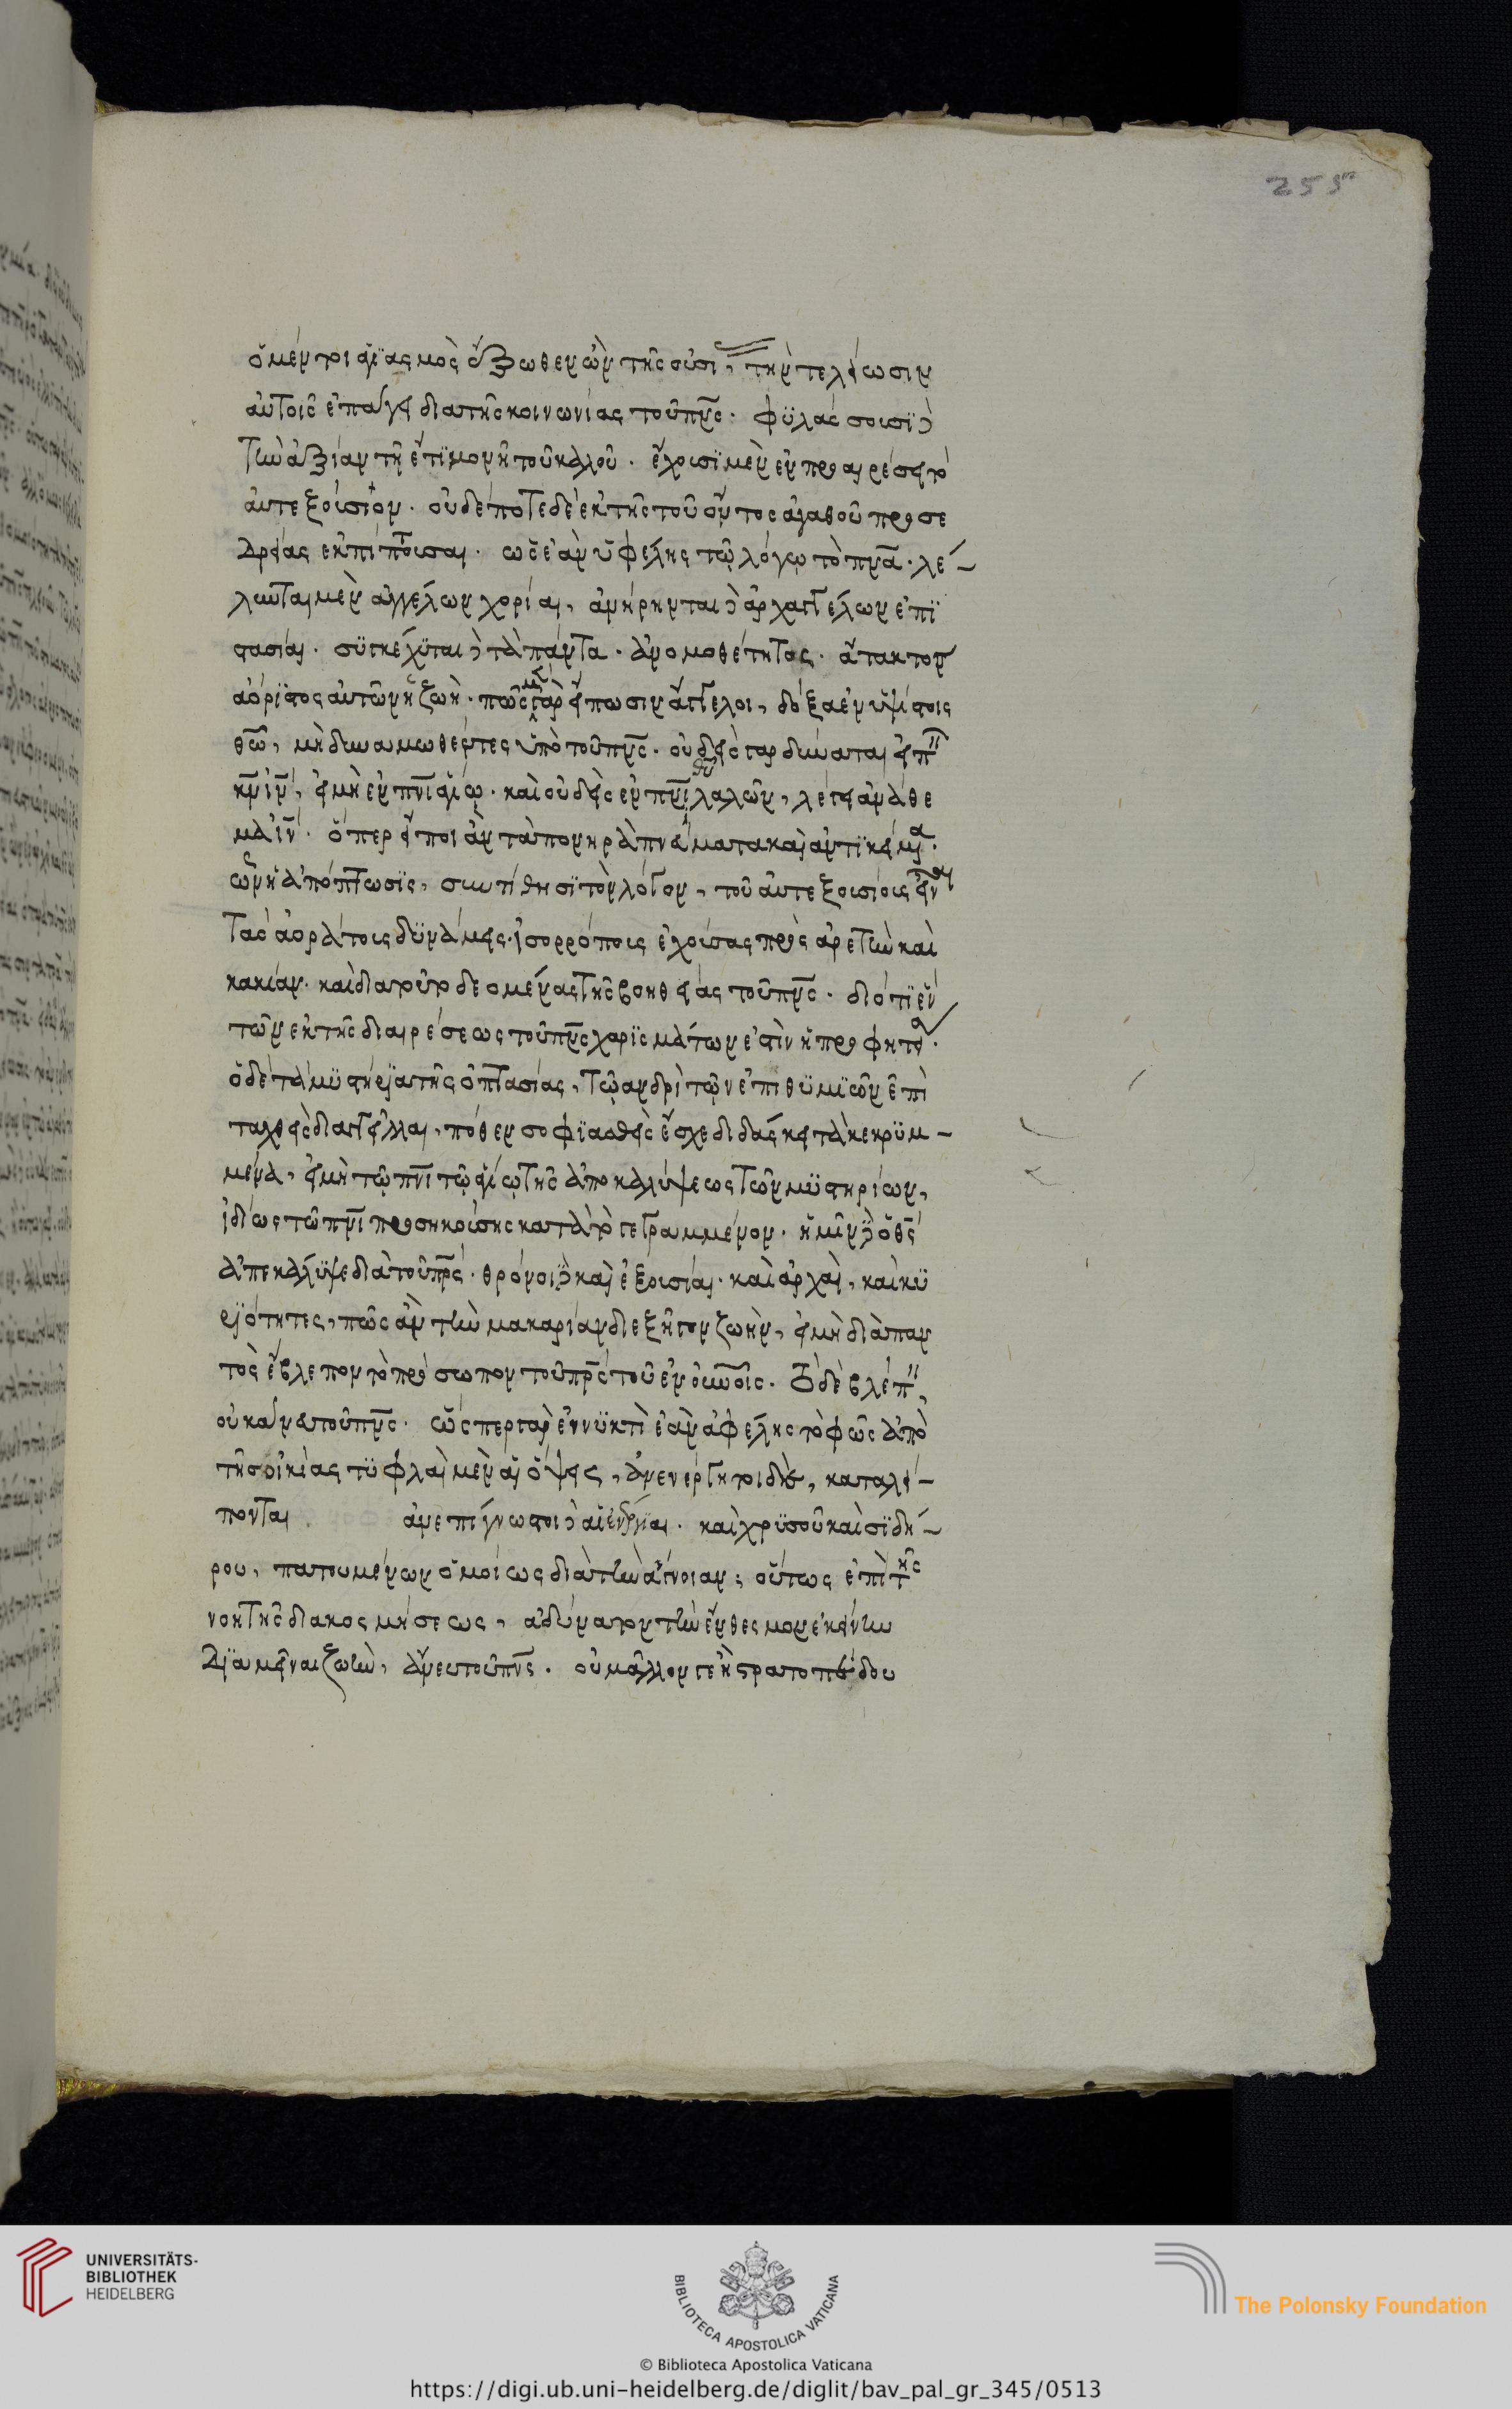 255
ὁ μέντοι ἁγϊασμὸς ἔξωθεν ὢν τῆς οὐσί, τὴν τελείωσιν
αὐτοῖς ἐπάγει διὰ τῆς κοινωνίας τοῦ πν̅ς. φϋλάσσουσϊ δὲ
τὴν ἀξίαν τῆ ἐπϊμονῆ τοῦ καλοῦ. ἔχουσϊ μὲν ἐν προαιρέσει τὸ
αὐτεξούσϊον. οὐδέποτε δὲ ἐκ τῆς τοῦ ὄντος ἀγαθοῦ προσε
δρείας ἐκπίπτουσαι. ὡς ἐὰν ὑφέλης τῷ λόγῳ τὸ πν̅α. λέ–
λυνται μὲν ἀγγέλων χορεῖαι, ἀνήρηνται δὲ ἀρχαγγέλων ἐπϊ
στασίαι. σϋγκέχϋται δὲ τὰ πάντα. ἀνομοθέτητος. ἄτακτος
ἀόρϊστος αὐτῶν ἡ ζωή. πῶς μὲν γὰρ εἴπωσιν ἄγγελοι, δόξα ἐν ὑψίστοις
θ̅ω, μὴ δυναμωθέντες ὑπὸ τοῦ πν̅ς. οὐδεὶς γὰρ δύναται εἰπ
κ̅ν ι̅ν, εἰ μὴ ἐν πν̅ι ἁγίῳ. καὶ οὐδεὶς ἐν πν̅ι θυ λαλῶν, λέγει ἀνάθε
μα ι̅ν. ὅπερ εἴποι ἂν τὰ πονηρὰ πνεύματα καὶ ἀντϊκείμενα.
ὧν ἡ ἀπόπτωσϊς, συνίστησϊ τὸν λόγον, τοῦ αὐτεξουσίους εἶναι
τὰς ἀοράτους δϋνάμεις. ἰσορρόπους ἐχούσας πρὸς ἀρετὴν καὶ
κακίαν. καὶ διὰ τοῦτο δεομένας τῆς βοηθείας τοῦ πν̅ς. διότϊ ἓν
τῶν ἐκ τῆς διαιρέσεως τοῦ πν̅ς χαρϊσμάτων ἐστὶν ἡ προφητεία.
ὁ δὲ τὰ μϋστήρϊα τῆς ὀπτασίας, τῷ ἀνδρὶ τῶν ἐπιθϋμϊῶν ἐπι
ταχθεὶς διαγγεῖλαι, πόθεν σοφϊσθεὶς ἔσχε διδάσκει τὰ κεκρϋμ–
μένα, εἰ μὴ τῷ πν̅ι τῷ ἁγίῳ τῆς ἀποκαλύψεως τῶν μϋστηρίων,
ἰδίως τῷ πν̅ι προσηκούσης κατὰ τὸ γεγραμμένον. ἡμῖν δὲ ὁ θ̅ς
ἀπεκάλϋψε διὰ τοῦ πν̅ς. θρόνοι δὲ καὶ ἐξουσίαι. καὶ ἀρχαὶ, καὶ κϋ
ρϊότητες, πῶς ἂν τὴν μακαρίαν διεξῆγον ζωὴν, εἰ μὴ διὰ παν
τὸς ἔβλεπον τὸ πρόσωπον τοῦ πρ̅ς τοῦ ἐν ο̅υνοῖς. ἡ δὲ βλέπ,
οὐκ ἄνευ τοῦ πν̅ς. ὥσπερ γὰρ ἐν νϋκτὶ ἐὰν ἀφέλης τὸ φῶς ἀπὸ
τῆς οἰκίας τϋφλαὶ μὲν αἱ ὄψεις, ἀνενέργητοι δὲ, καταλεί–
πονται ἀνεπίγνωστοι δὲ αἱ ἐνέργϊαι. καὶ χρϋσοῦ καὶ σϊδή–
ρου, πατουμένων ὁμοίως διὰ τὴν ἄγνοιαν; οὕτως ἐπὶ τῆς
νοητῆς διακοσμήσεως, ἀδύνατον τὴν ἔνθεσμον ἐκείνην
δϊαμεῖναι ζωὴν, ἄνευ τοῦ πν̅ς. οὐ μᾶλλον γε ἢ στρατοπέδου
UNIVERSITÄTS-
BIBLIOTHEK
HEIDELBERG
BIBLIOTECA APOSTOLICA VATICANA
The Polonsky Foundation
© Biblioteca Apostolica Vaticana
https://digi.ub.uni-heidelberg.de/diglit/bav_pal_gr_345/0513